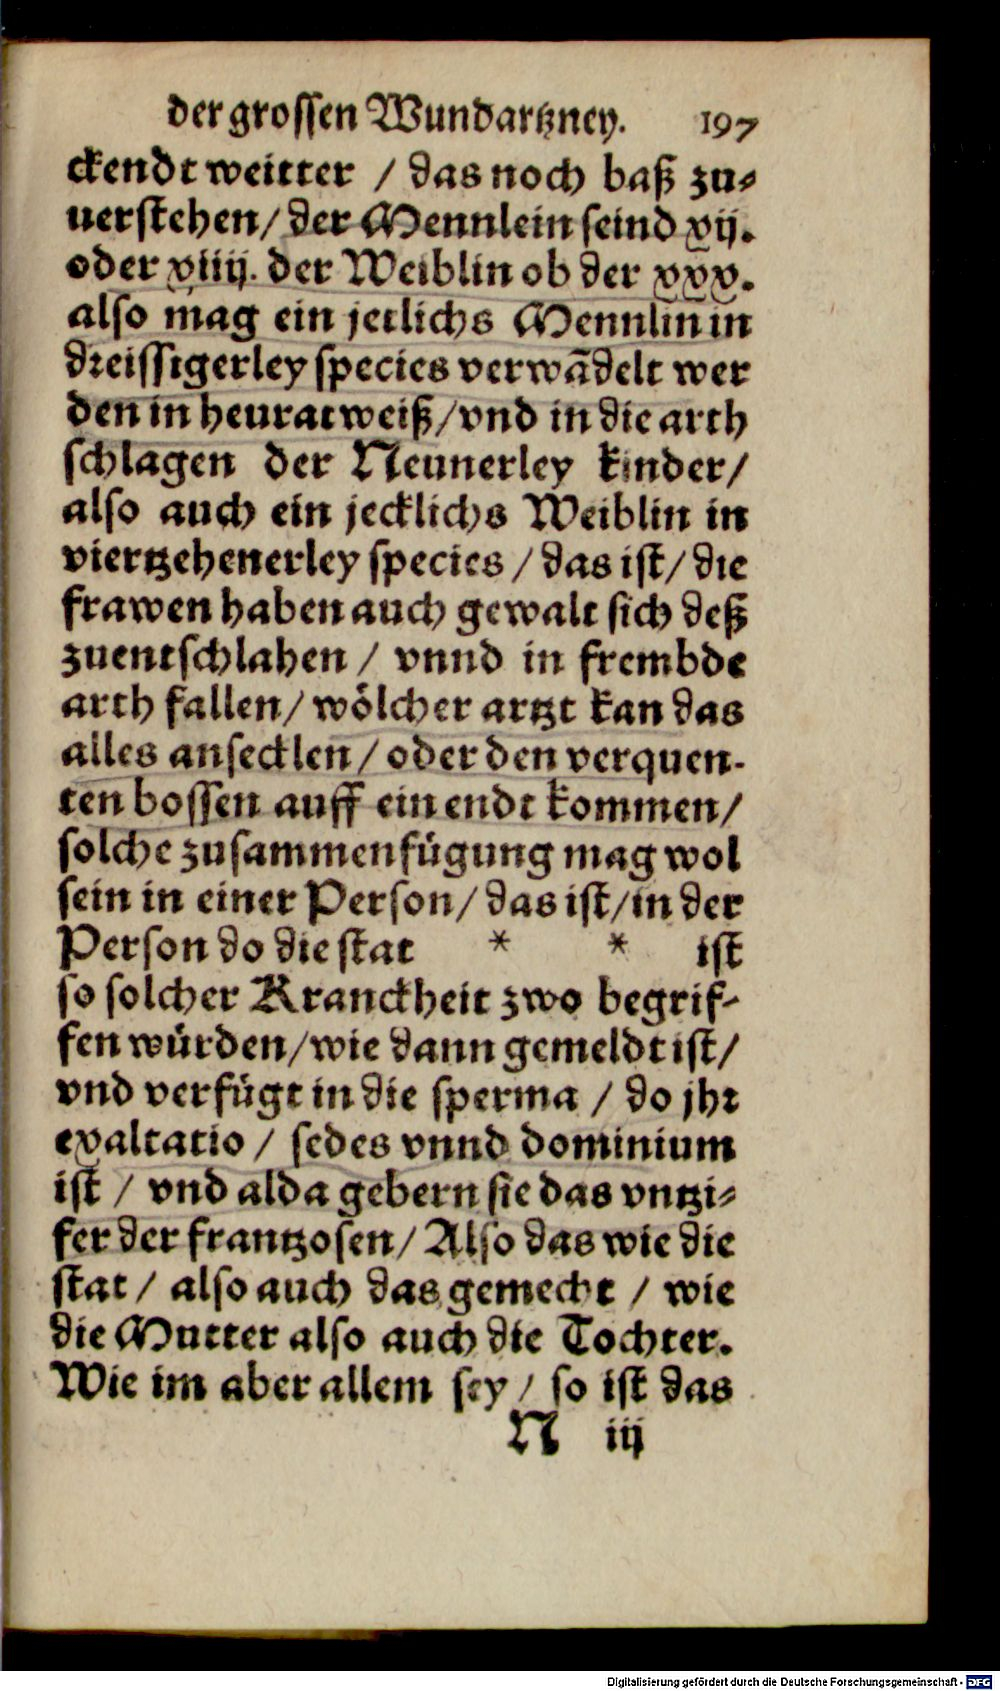 der grossen Wundartzney. 197
ckendt weitter / das noch baß zu-
uerstehen / der Mennlein seind xij.
oder xiiij. der Weiblin ob der xxx.
also mag ein jetlichs Mennlin in
dreissigerley species verwãdelt wer
den in heurat weiß / vnd in die arth
schlagen der Neunerley kinder /
also auch ein jecklichs Weiblin in
viertzehenerley species / das ist / die
frawen haben auch gewalt sich deß
zuentschlahen / vnnd in frembde
arth fallen / wölcher artzt kan das
alles ansecklen / oder den verquen-
ten bossen auff ein endt kommen /
solche zusammenfügung mag wol
sein in einer Person / das ist / in der
Person do die stat * * ist
so solcher Kranckheit zwo begrif-
fen würden / wie dann gemeldt ist /
vnd verfügt in die sperma / do jhr
exaltatio / sedes vnnd dominium
ist / vnd alda gebern sie das vntzi-
fer der frantzosen / Also das wie die
stat / also auch das gemecht / wie
die Mutter also auch die Tochter.
Wie im aber allem sey / so ist das
N iij
Digitalisierung gefördert durch die Deutsche Forschungsgemeinschaft - DFG